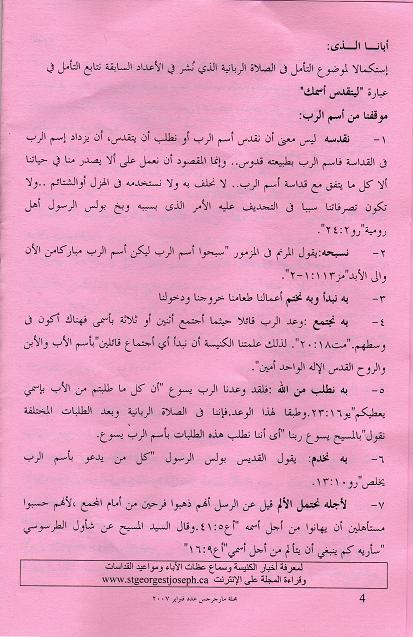 أبانا الذى:
إستكمالا لموضوع التأمل فى الصلاة الربانية الذي نُشر في الأعداد السابقة نتابع التأمل في
عبارة "ليتقدس أسمك"
موقفنا من أسم الرب:
١- نقدسه ليس معنى أن نقدس أسم الرب أو نطلب أن يتقدس، أن يزداد إسم الرب
فى القداسة فاسم الرب بطبيعته قدوس.. وإنما المقصود أن نعمل على ألا يصدر منا في حياتنا
ألا كل ما يتفق مع قداسة أسم الرب.. لا نحلف به ولا نستخدمه فى الهزل أوالشتائم ..ولا
تكون تصرفاتنا سببا فى التجديف عليه الأمر الذى بسببه وبخ بولس الرسول أهل
رومية"رو٢٤:٢".
٢- نسبحه:يقول المرنم في المزمور "سبحوا أسم الرب ليكن أسم الرب مباركامن الأن
والى الأبد"مز١١٣:١-٢".
٣- به نبدأ وبه نختم أعمالنا طعامنا خروجنا ودخولنا
٤- به نجتمع :وعد الرب قائلا حيثما أجتمع أثنين أو ثلاثة بأسمى فهناك أكون فى
وسطهم."مت٢٠:١٨". لذلك علمتنا الكنيسة أن نبدأ أي أجتماع قائلين"بأسم الأب والأبن
والروح القدس الإله الواحد أمين".
٥- به نطلب من الله :فلقد وعدنا الرب يسوع "أن كل ما طلبتم من الأب بإسمي
يعطيكم"يو٢٣:١٦.وطبقا لهذا الوعد.فإننا فى الصلاة الربانية وبعد الطلبات المختلفة
نقول"بالمسيح يسوع ربنا "أى أننا نطلب هذه الطلبات بأسم الرب يسوع.
٦- به نخدم: يقول القديس بولس الرسول "كل من يدعو بأسم الرب
يخلص"رو١٣:١٠.
٧- لأجله نحتمل الألم قيل عن الرسل أنهم ذهبوا فرحين من أمام المجمع ،لأنهم حسبوا
مستأهلين أن يهانوا من أجل أسمه "أع٤١:٥.وقال السيد المسيح عن شأول الطرسوسي
"سأريه كم ينبغي أن يتألم من أجل أسمي"أع١٦:٩"
لمعرفة أخبار الكنيسة وسماع عظات الأباء ومواعيد القداسات
وقراءة المجلة على الإنترنت www.stgeorgestjoseph.ca
مجلة مارجرجس عدد فبراير ٢٠٠٧
4